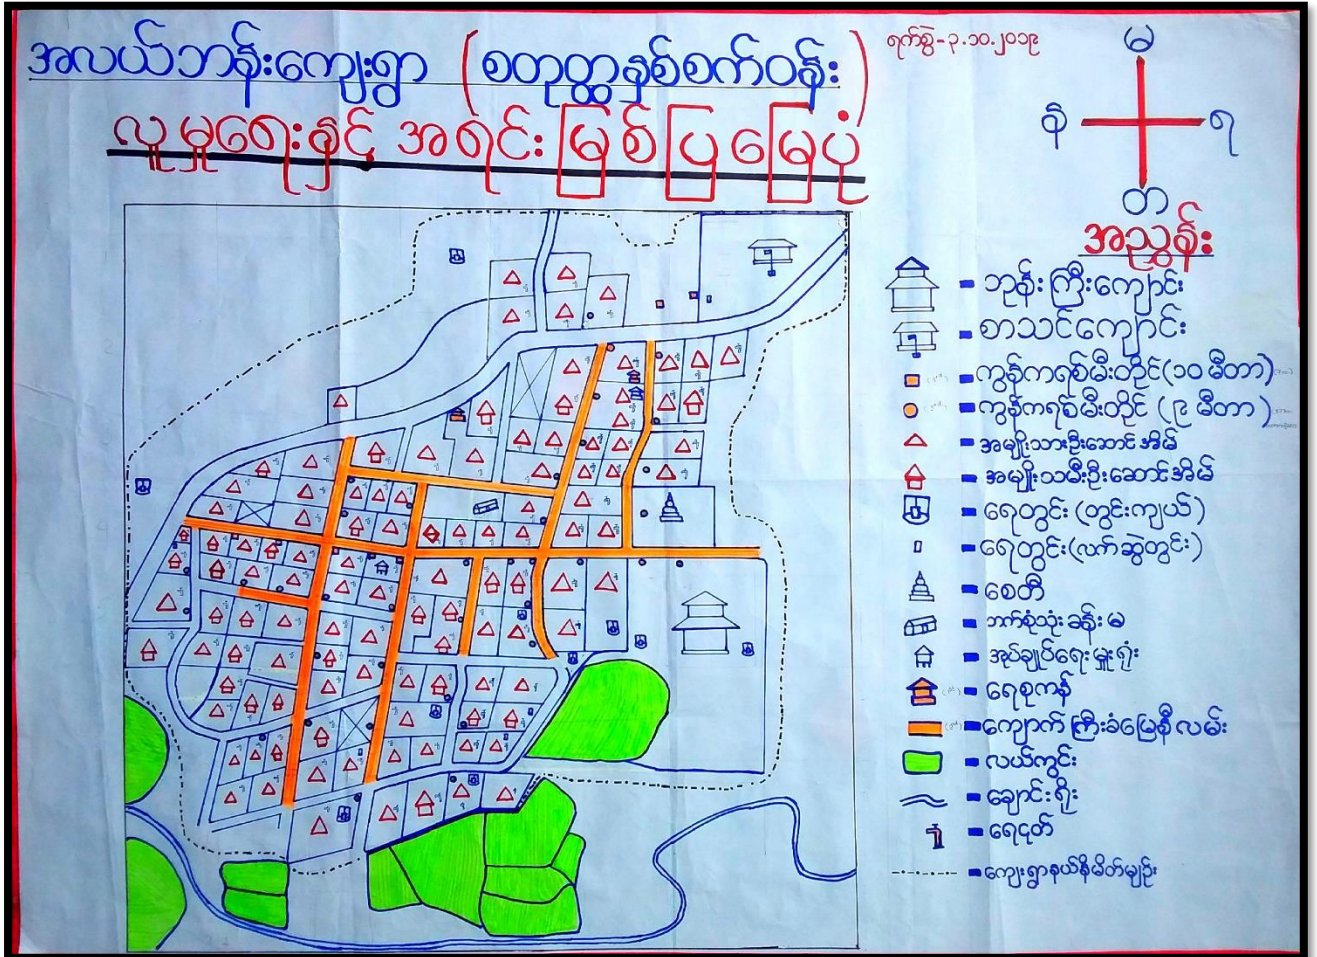 အလယ်ဘန်းကျေးရွာ (စတုတ္ထနှစ်စက်ဝန်း)
လူမှုရေးနှင့် အရင်းမြစ်ပြမြေပုံ
ရက်စွဲ-၃.၁၀.၂၀၁၉
မ
န
ရ
တ
အညွှန်း
ဘုန်းကြီးကျောင်း
စာသင်ကျောင်း
ကွန်ကရစ်မီးတိုင်(၁၀မီတာ)
ကွန်ကရစ်မီးတိုင် (၉ မီတာ)
အမျိုးသားဦးဆောင်အိမ်
အမျိုးသမီးဦးဆောင်အိမ်
ရေတွင်း (တွင်းကျယ်)
ရေတွင်း(လက်ဆွဲတွင်း)
စေတီ
ဘက်စုံသုံးခန်းမ
အုပ်ချုပ်ရေးမှူးရုံး
ရေစုကန်
ကျောက်ကြီးခံမြေနီလမ်း
လယ်ကွင်း
ချောင်းရိုး
ရေငုတ်
ကျေးရွာနယ်နိမိတ်မျဉ်း